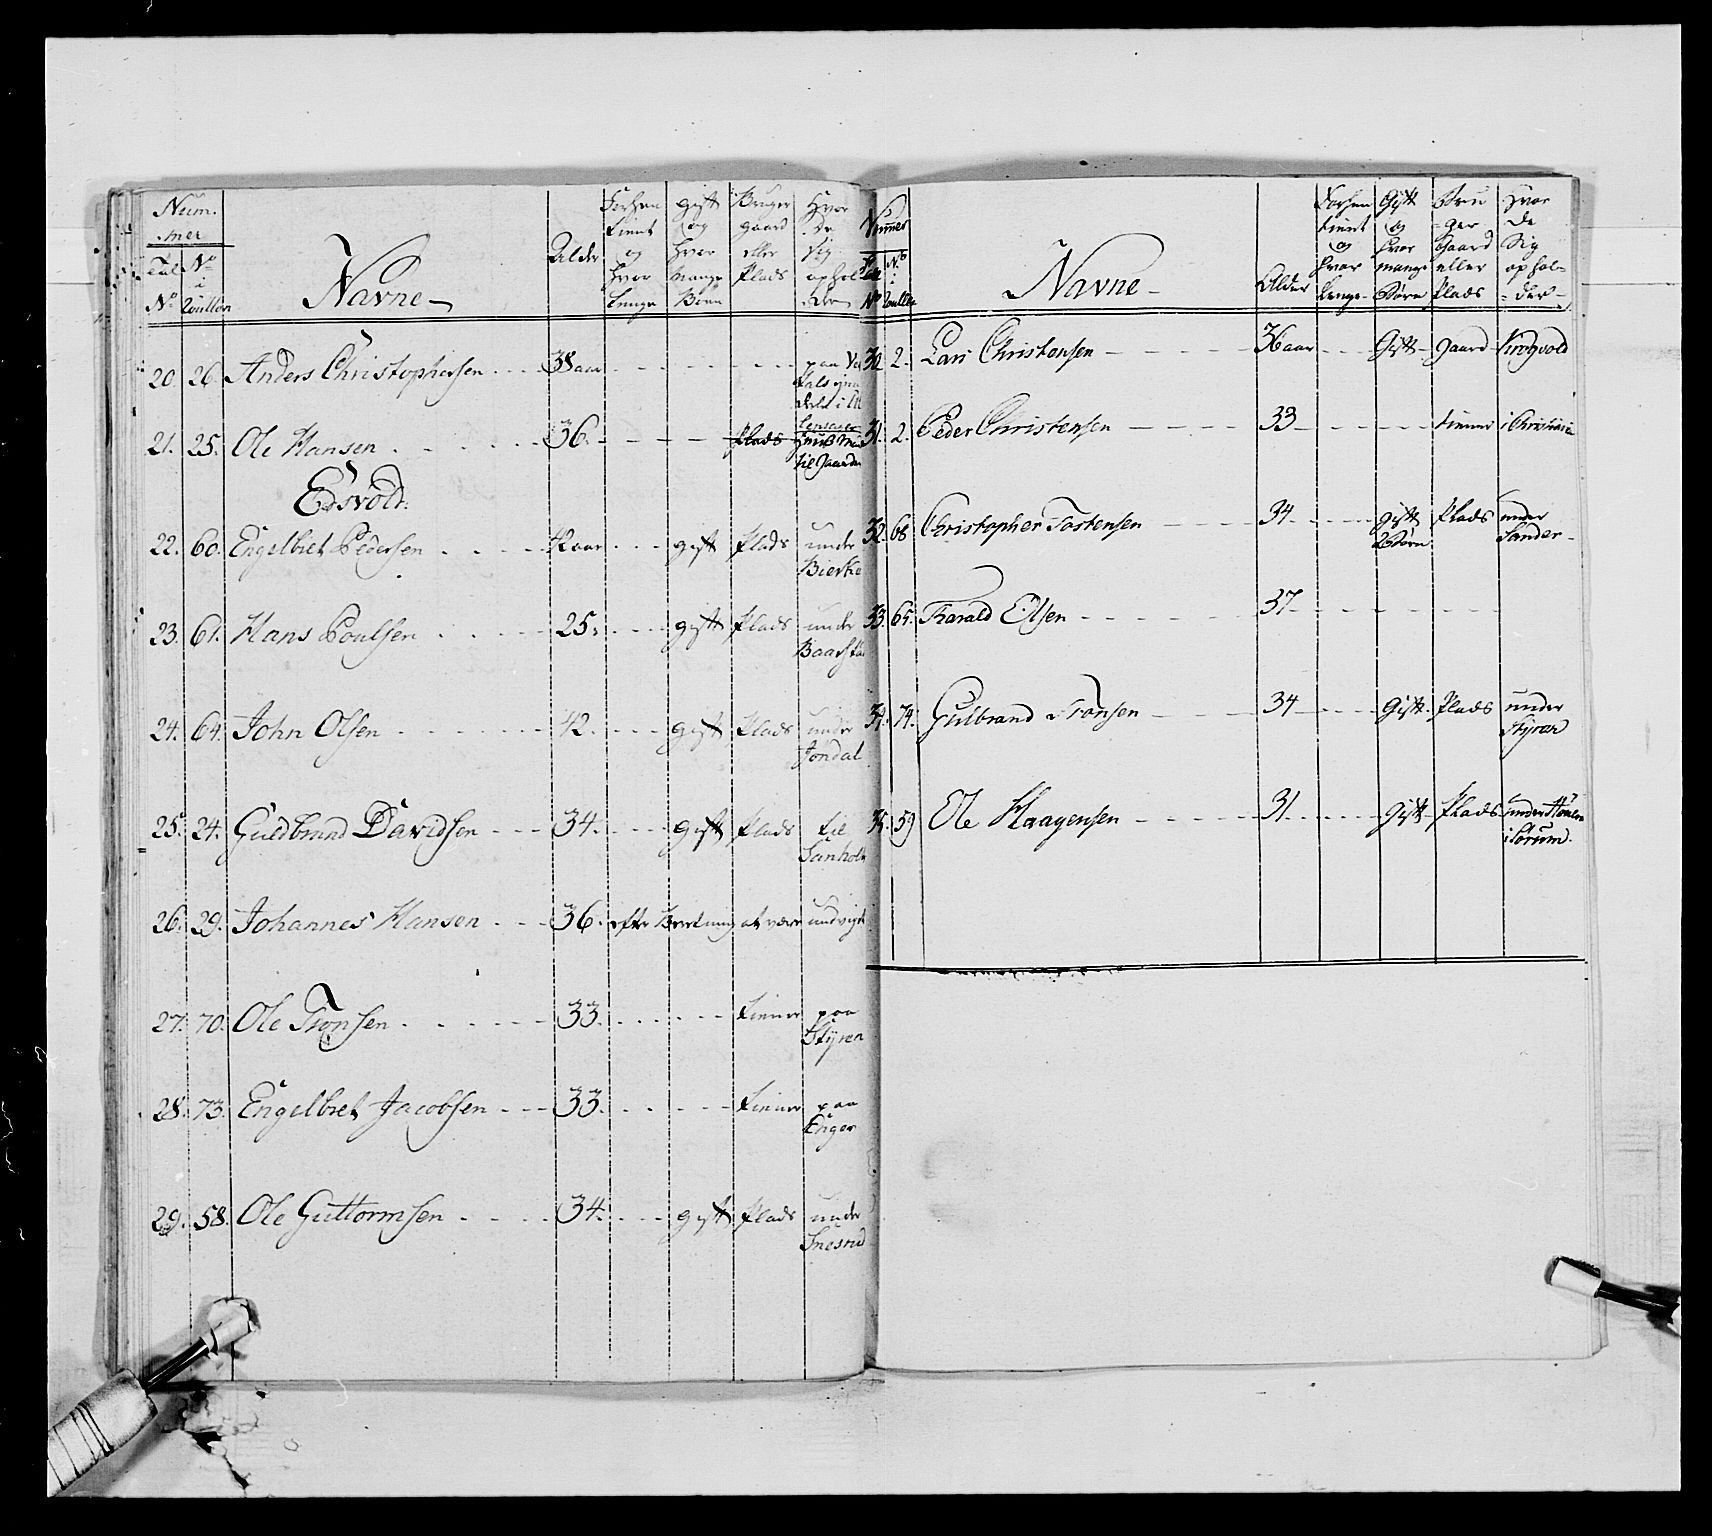 Num.
mer
Tal No
No i Roullen
Navne
Alder
Forhen tient og hvor Lenge
gift og hvor mange Børn
Bruger gaard eller Plads
Hvor De Sig opholder
20. 26. Anders Christophersen 38 aar paa
21. 25. Ole Hansen 36. Plads
til Gaarden
Edsvold:
22. 60. Engelbret Pedersen 42 aar gift Plads under
Bierke
23. 61. Hans Poulsen 25: gift Plads under
24. 64. John Olsen 42. gift Plads under
Jondal
25. 24. Guldbrand Davidsen 34. gift Plads til
26. 29. Johannes Hansen 36. efter Beretning at være undvigt
27. 70. Ole Tronsen 33. tiener paa
Styren
28. 73. Engelbret Jacobsen 33. tiener paa
Enger
29. 58. Ole Guttormsen 34. gift Plads under
Numer
No
No i Roullen
Navne
Alder
Forhen tient og hvor Lenge
Gift og hvor mange Børn
Bruger Gaard eller Plads
Hvor De Sig opholder
30. 2. Lars Christensen 36 aar Gift Gaard
31. 2. Peder Christensen 33 tiener i Christiania
32. 68 Christopher Tostensen 34 gift Plads under
2 Børn Sander
33. 65. Harald Elsen 37
34. 74. Gulbrand Tronsen 34 Gift Plads under
Styren
35. 59 Ole Haagensen 31. Gift Plads under
i Sørum.